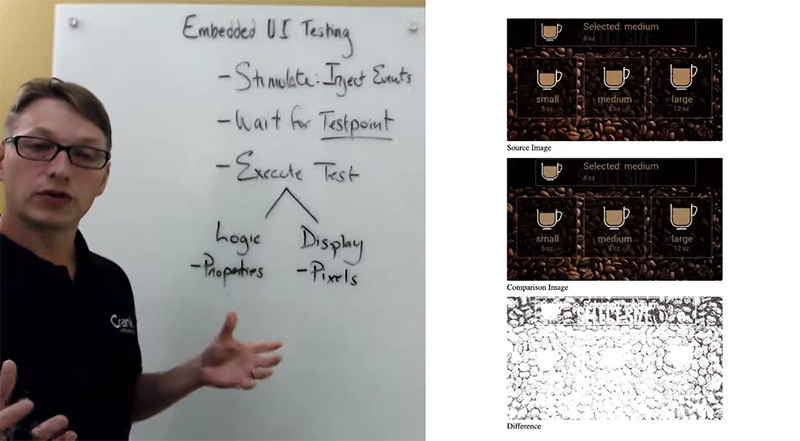 Embedded UI Testing
- Stimulate: Inject Events
- Wait for Testpoint
- Execute Test
Logic
Display
- Properties
- Pixels
Crank
Selected: medium
8 oz
small
medium
large
5 oz
8 oz
12 oz
Source Image
Selected: medium
8 oz
small
medium
large
5 oz
8 oz
12 oz
Comparison Image
Selected: medium
Difference